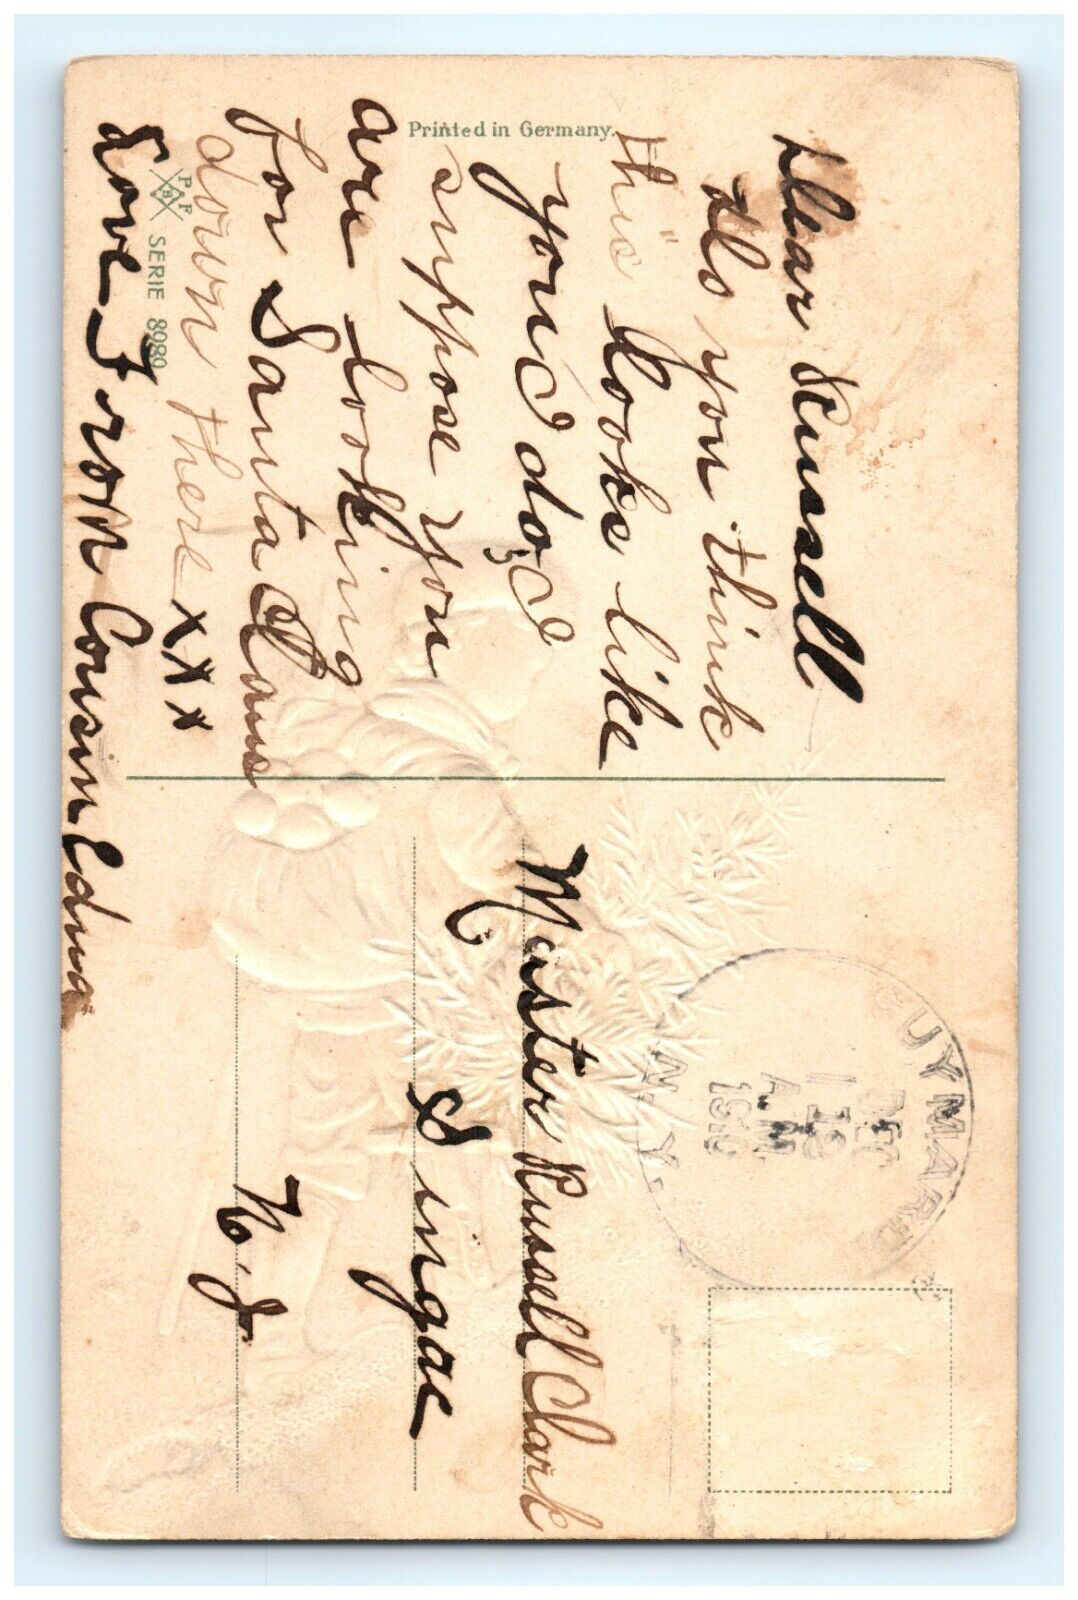 Printed in Germany.
P F B
SERIE 8989
Dear Russell
Do you think
this looks like
you I do, I
suppose you
are looking
for Santa Claus
down there x x x x
Love From Cousin Edna
GUYMARD
N.Y.
DEC
A.M.
Master Russell Clark
Singac
N.J.